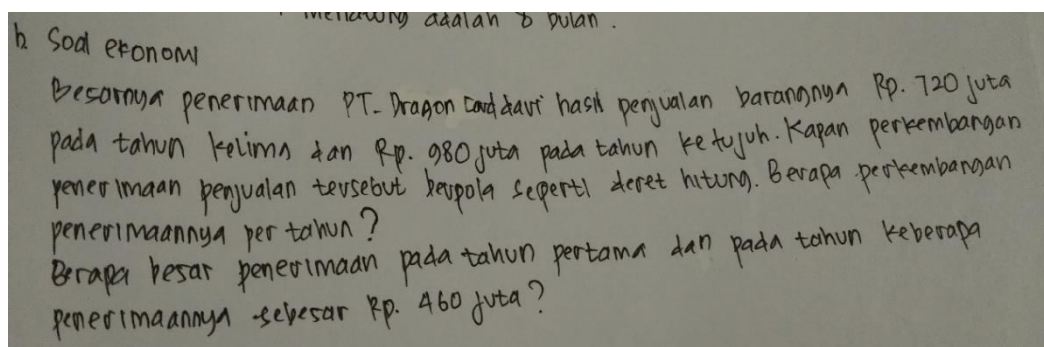 Menabung adalah 8 bulan.
b Soal ekonomi
Besarnya penerimaan PT. Dragon Card dari hasil penjualan barangnya Rp. 720 juta
pada tahun kelima dan Rp. 980 juta pada tahun ketujuh. Kapan perkembangan
penerimaan penjualan tersebut berpola seperti deret hitung. Berapa perkembangan
penerimaannya per tahun?
Berapa besar penerimaan pada tahun pertama dan pada tahun keberapa
penerimaannya sebesar Rp. 460 juta?